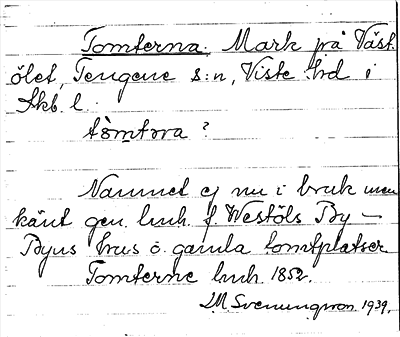 Tomterna. Mark på Väst.
ölet, Tengene s:n, Viste hd i
Skb. l.
tòmtɔra ?
Namnet ej nu i bruk men
känt gen. lmh. f. Westöls By –
Byns hus o. gamla tomtplatser
Tomterne lmh. 1852.
IM Svenungsson 1939.